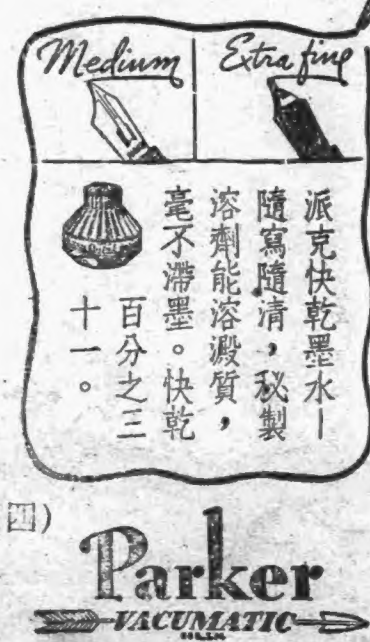 Medium
Extra fine
派克快乾墨水—
隨寫隨清，秘製
溶劑能溶澱質，
毫不滯墨。快乾
百分之三
十一。
四)
Parker
VACUMATIC